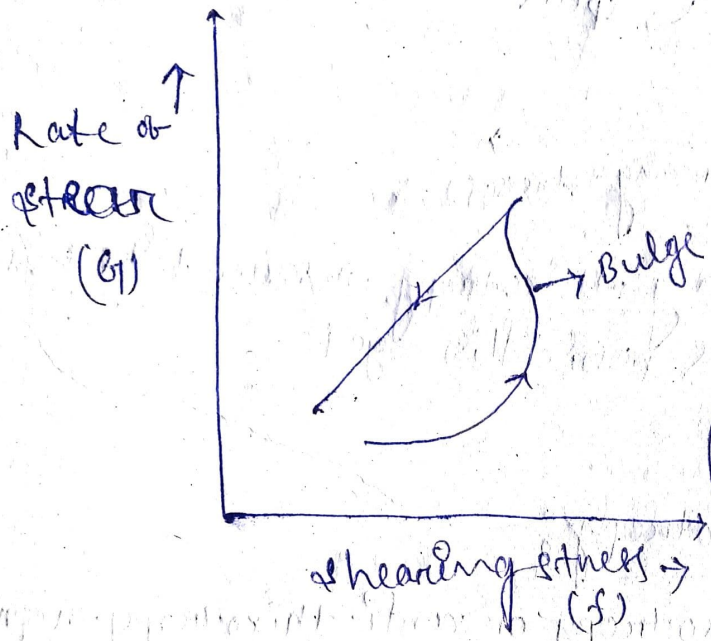 Rate of
shear
(G)
Bulge
shearing stress →
(f)